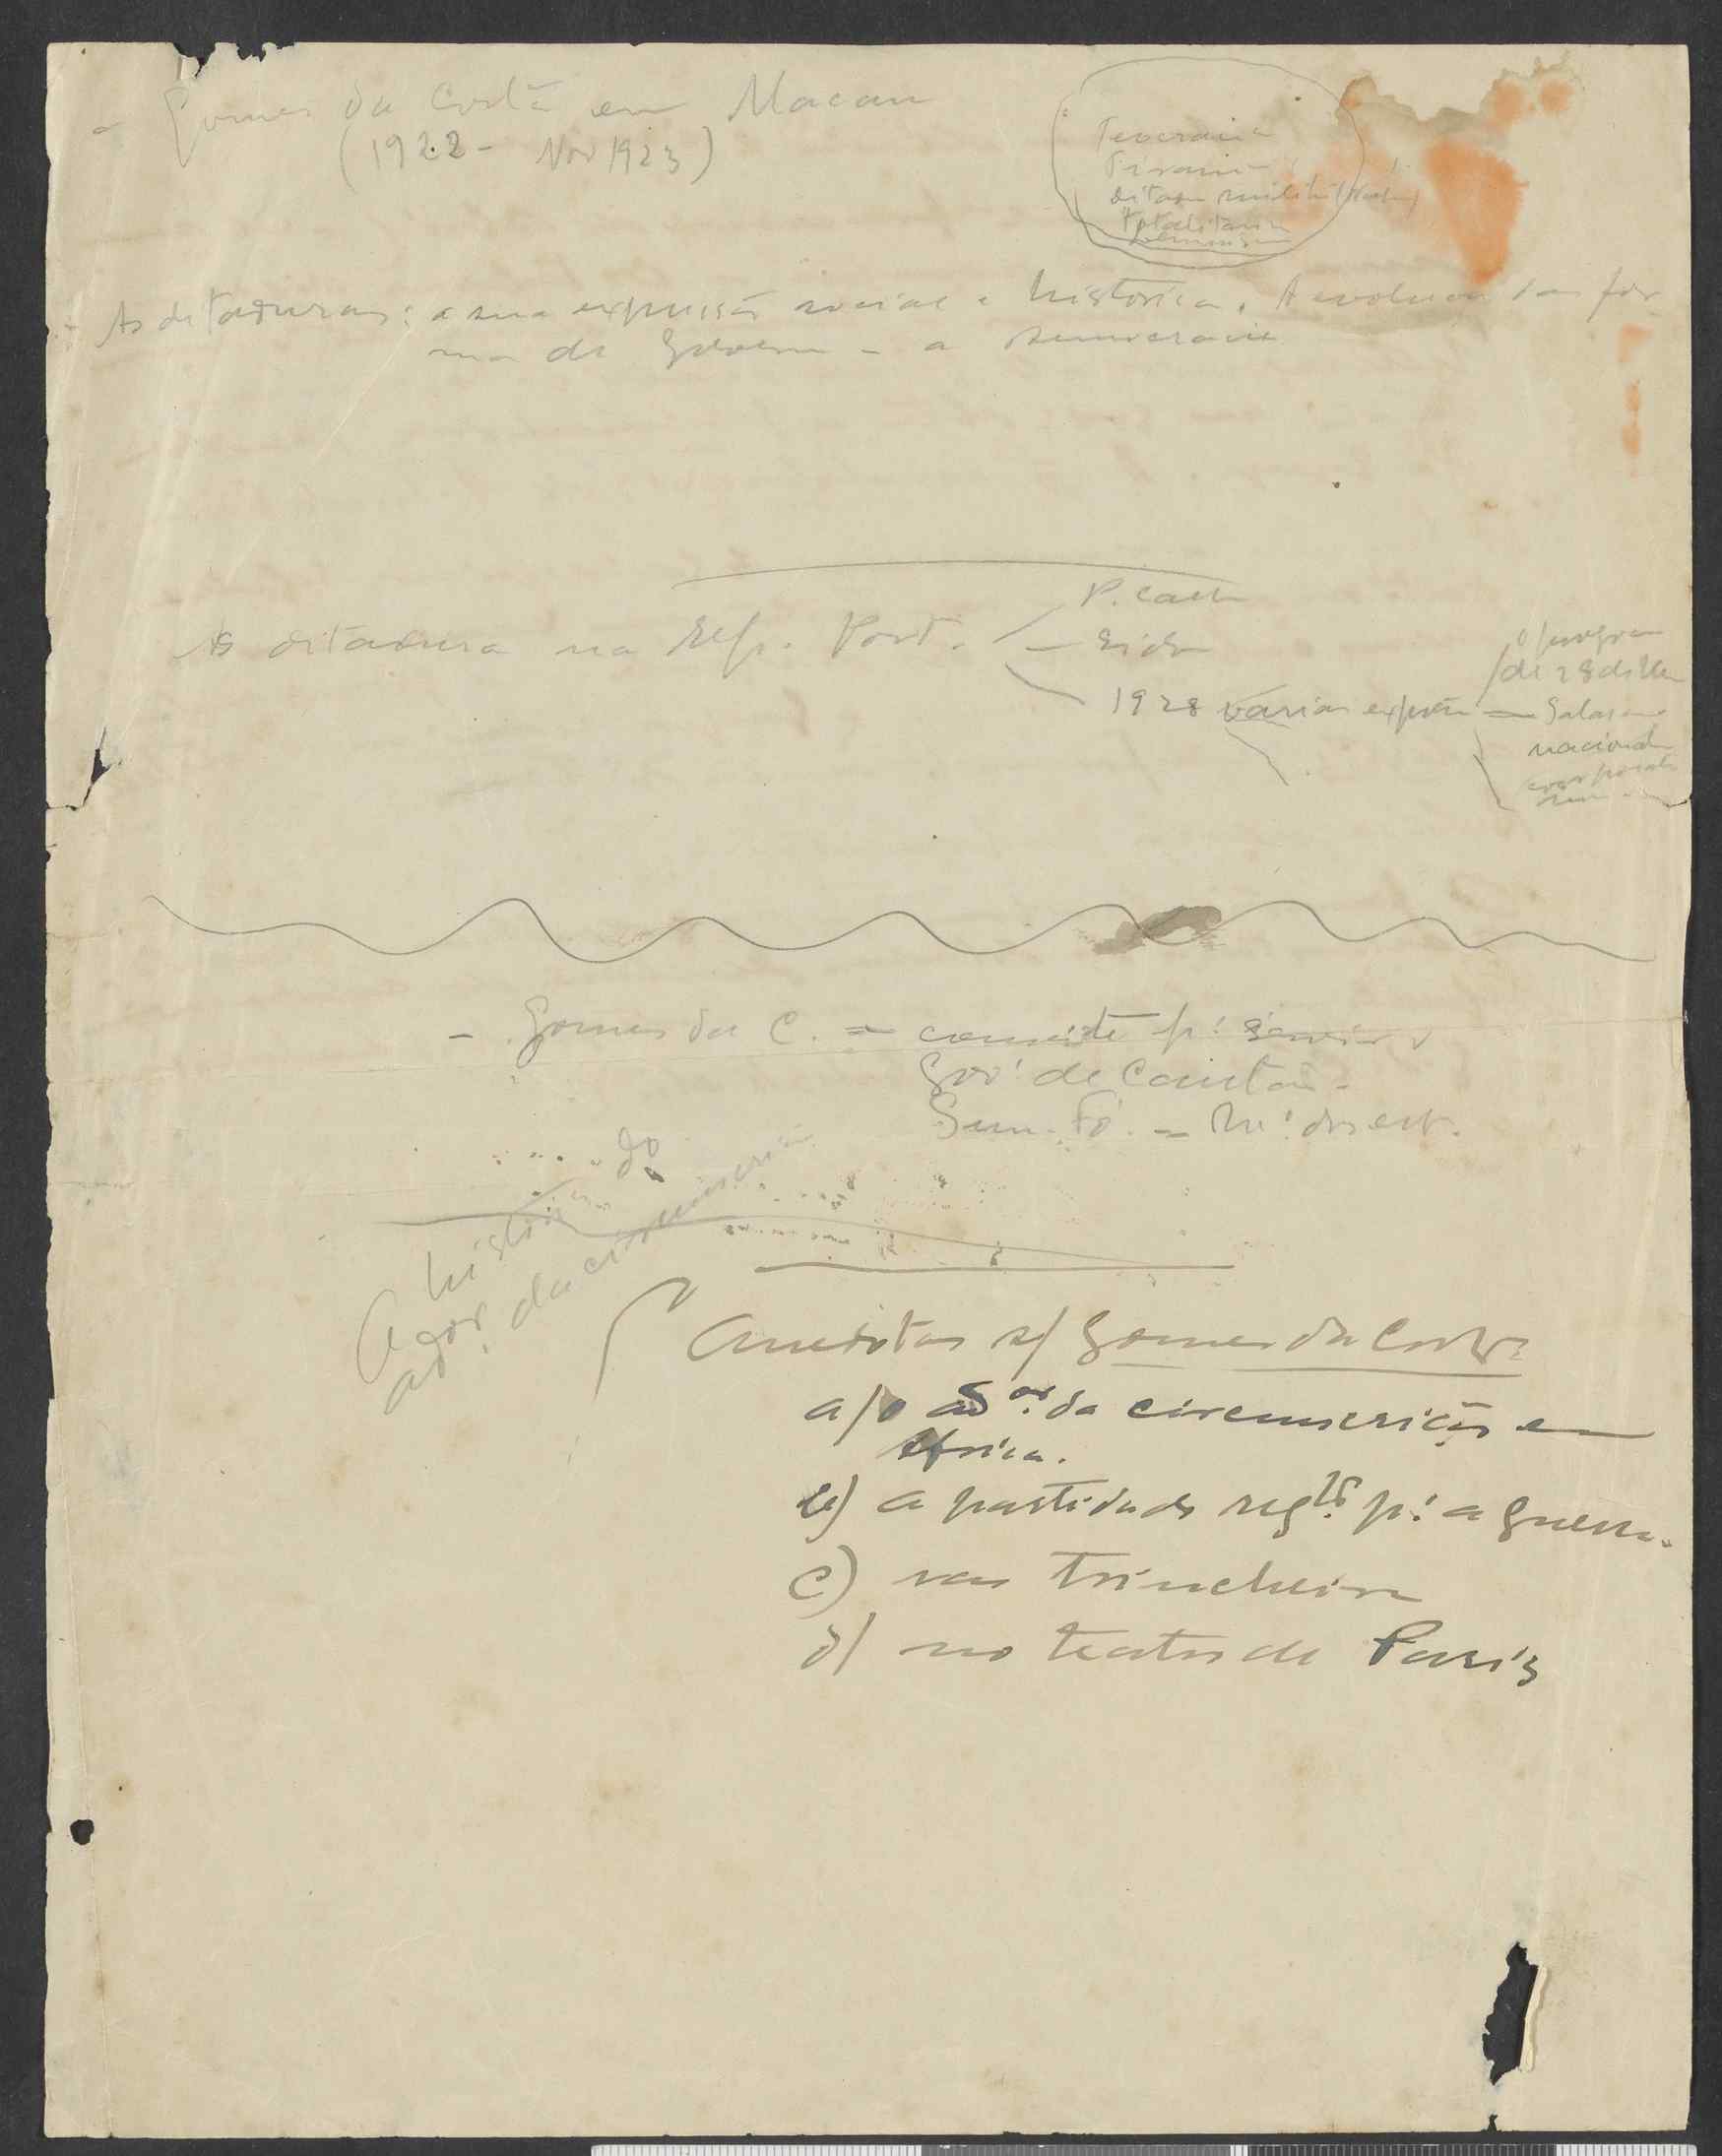 - Gomes da Costa em Macau
(1922 - Nov 1923)
Teocracia
Tirania
ditadura militar
totalitaria
- As ditaduras: a sua expressão social e histórica. A evolução das for-
mas de Governo - a democracia
As ditadura na Rep. Port.
P. Castro
- Sidonio
1928 varias
O programa
de 28 de Maio
Salazar
nacional
corporati
- Gomes da C. = convite pª
Govº de Cantão -
Sun. Fó. =
A história do
adºr da circunscrição
Anedotas s/ Gomes da Costa
a) o adºr da circunscrição em
Africa.
b) a partida do regtº pª a guerra.
c) nas trincheiras
d) no teatro de Paris